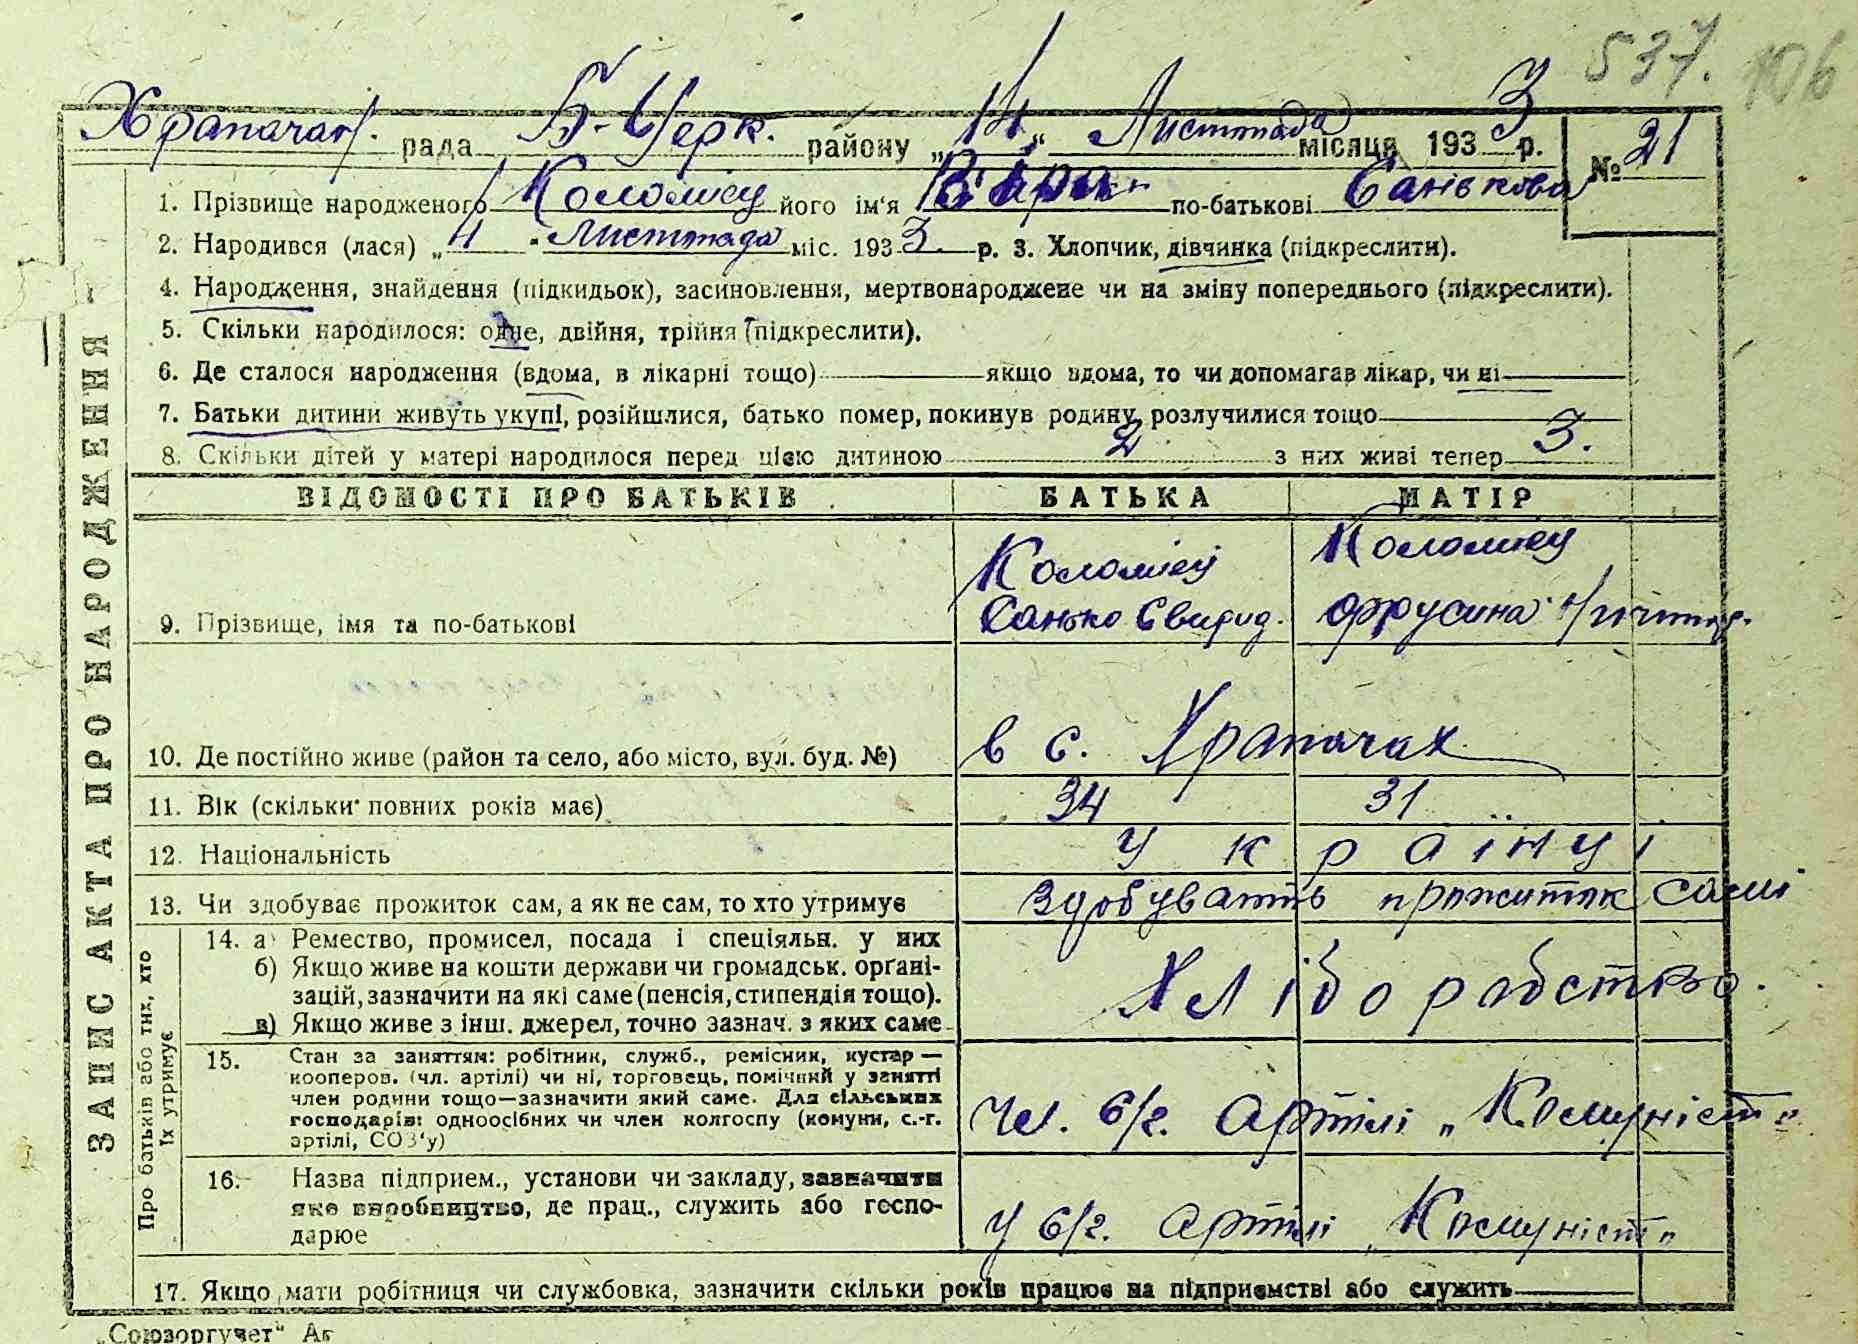 537. 106
Храпачан. рада Б-Церк. району „14“ Листопада місяця 1933 р.
№ 21
1. Прізвище народженого Коломієц його ім'я Віра по-батькові Санькова
2. Народився (лася) „4“ Листопада міс. 1933. р. 3. Хлопчик, дівчинка (підкреслити).
4. Народження, знайдення (підкидьок), засиновлення, мертвонароджене чи на зміну попереднього (підкреслити).
5. Скільки народилося: одне, двійня, трійня (підкреслити).
6. Де сталося народження (вдома, в лікарні тощо) якщо вдома, то чи допомагав лікар, чи ні
7. Батьки дитини живуть укупі, розійшлися, батько помер, покинув родину, розлучилися тощо
8. Скільки дітей у матері народилося перед цією дитиною 2 з них живі тепер 3.
ЗАПИС АКТА ПРО НАРОДЖЕННЯ
ВІДОМОСТІ ПРО БАТЬКІВ БАТЬКА МАТІР
Коломієц Коломієц
9. Прізвище, імя та по-батькові Санько Свирид. Фрусина
10. Де постійно живе (район та село, або місто, вул. буд. №) в с. Храпачах
11. Вік (скільки повних років має) 34 31
12. Національність Українці
13. Чи здобуває прожиток сам, а як не сам, то хто утримує здобувають прожиток самі
Про батьків або тих, хто їх утримує
14. а) Ремество, промисел, посада і спеціяльн. у них
б) Якщо живе на кошти держави чи громадськ. орґані-
зацій, зазначити на які саме (пенсія, стипендія тощо). Хліборобство.
в) Якщо живе з інш. джерел, точно зазнач. з яких саме
15. Стан за заняттям: робітник, служб., ремісник, кустар —
кооперов. (чл. артілі) чи ні, торговець, помічний у занятті
член родини тощо—зазначити який саме. Для сільських
господарів: одноосібних чи член колгоспу (комуни, с.-г. чл. с/г. артілі „Комуніст“
артілі, СОЗ'у)
16. Назва підприєм., установи чи закладу, зазначити
яке виробництво, де прац., служить або госпо- у с/г. артілі „Комуніст“
дарює
17. Якщо мати робітниця чи службовка, зазначити скільки років працює на підприємстві або служить
„Союзоргучет“